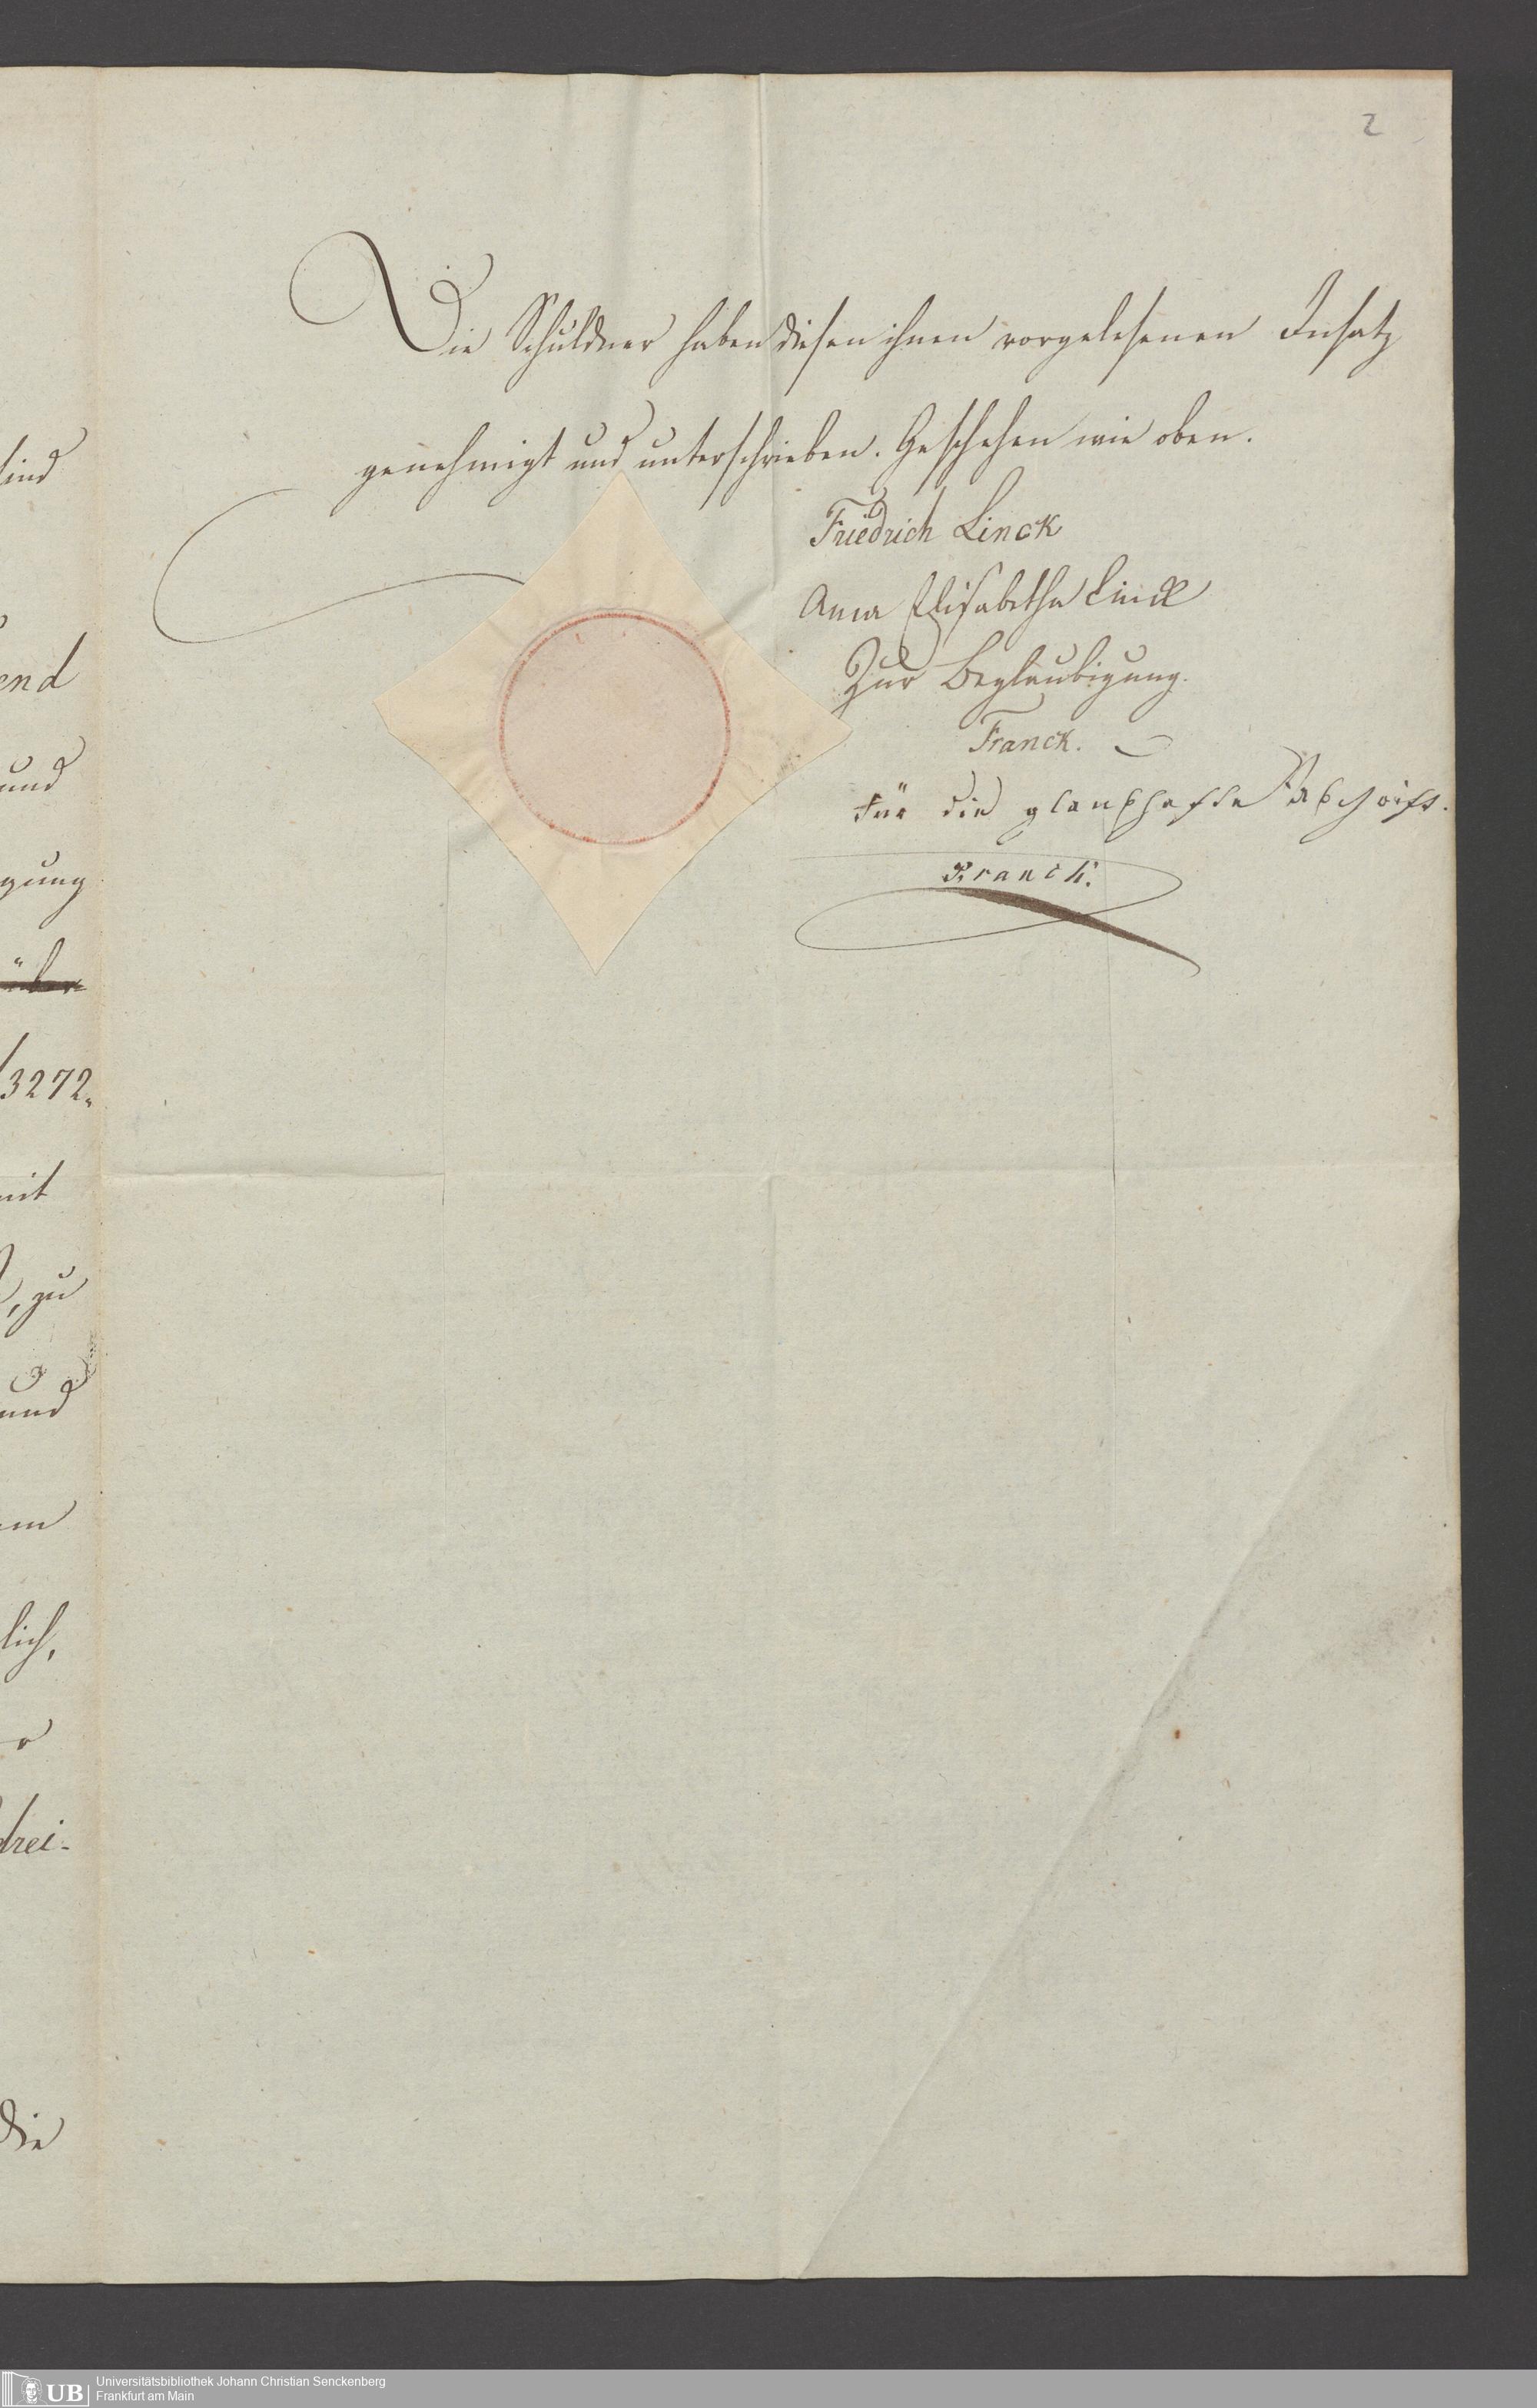 2
Die Schuldner haben diesen ihnen vorgelesenen Insatz
genehmigt und unterschrieben. Geschehen wie oben.
Friedrich Linck
Anna Elisabetha Linck
Zur Beglaubigung.
Franck.
Für die glaubhafte Abschrift.
Franck.
sind
end
und
gung
über
3272.
mit
, zu
und
em
lich,
drei-
Die
UB
Universitätsbibliothek Johann Christian Senckenberg
Frankfurt am Main